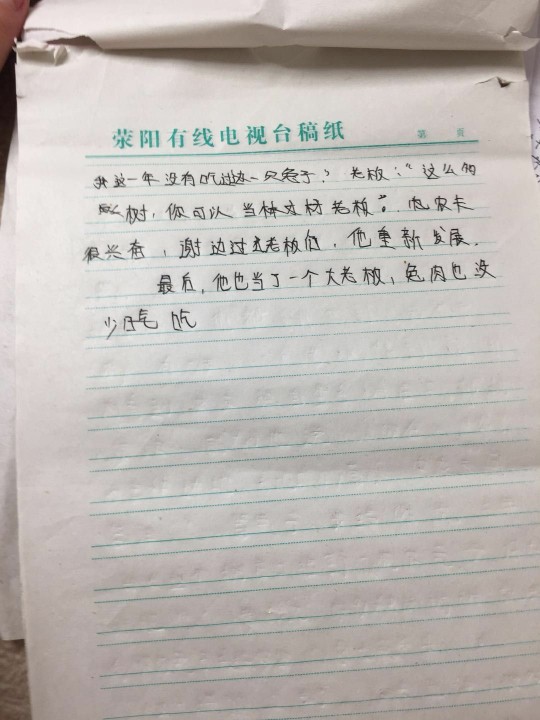 荥阳有线电视台稿纸 第 页
我这一年没有吃过一只兔子？老板："这么多
树，你可以当林木材老板"。内农卡
很兴奋，谢过老板们，他重新发展.
最后，他也当了一个大老板，兔肉也没
少吃